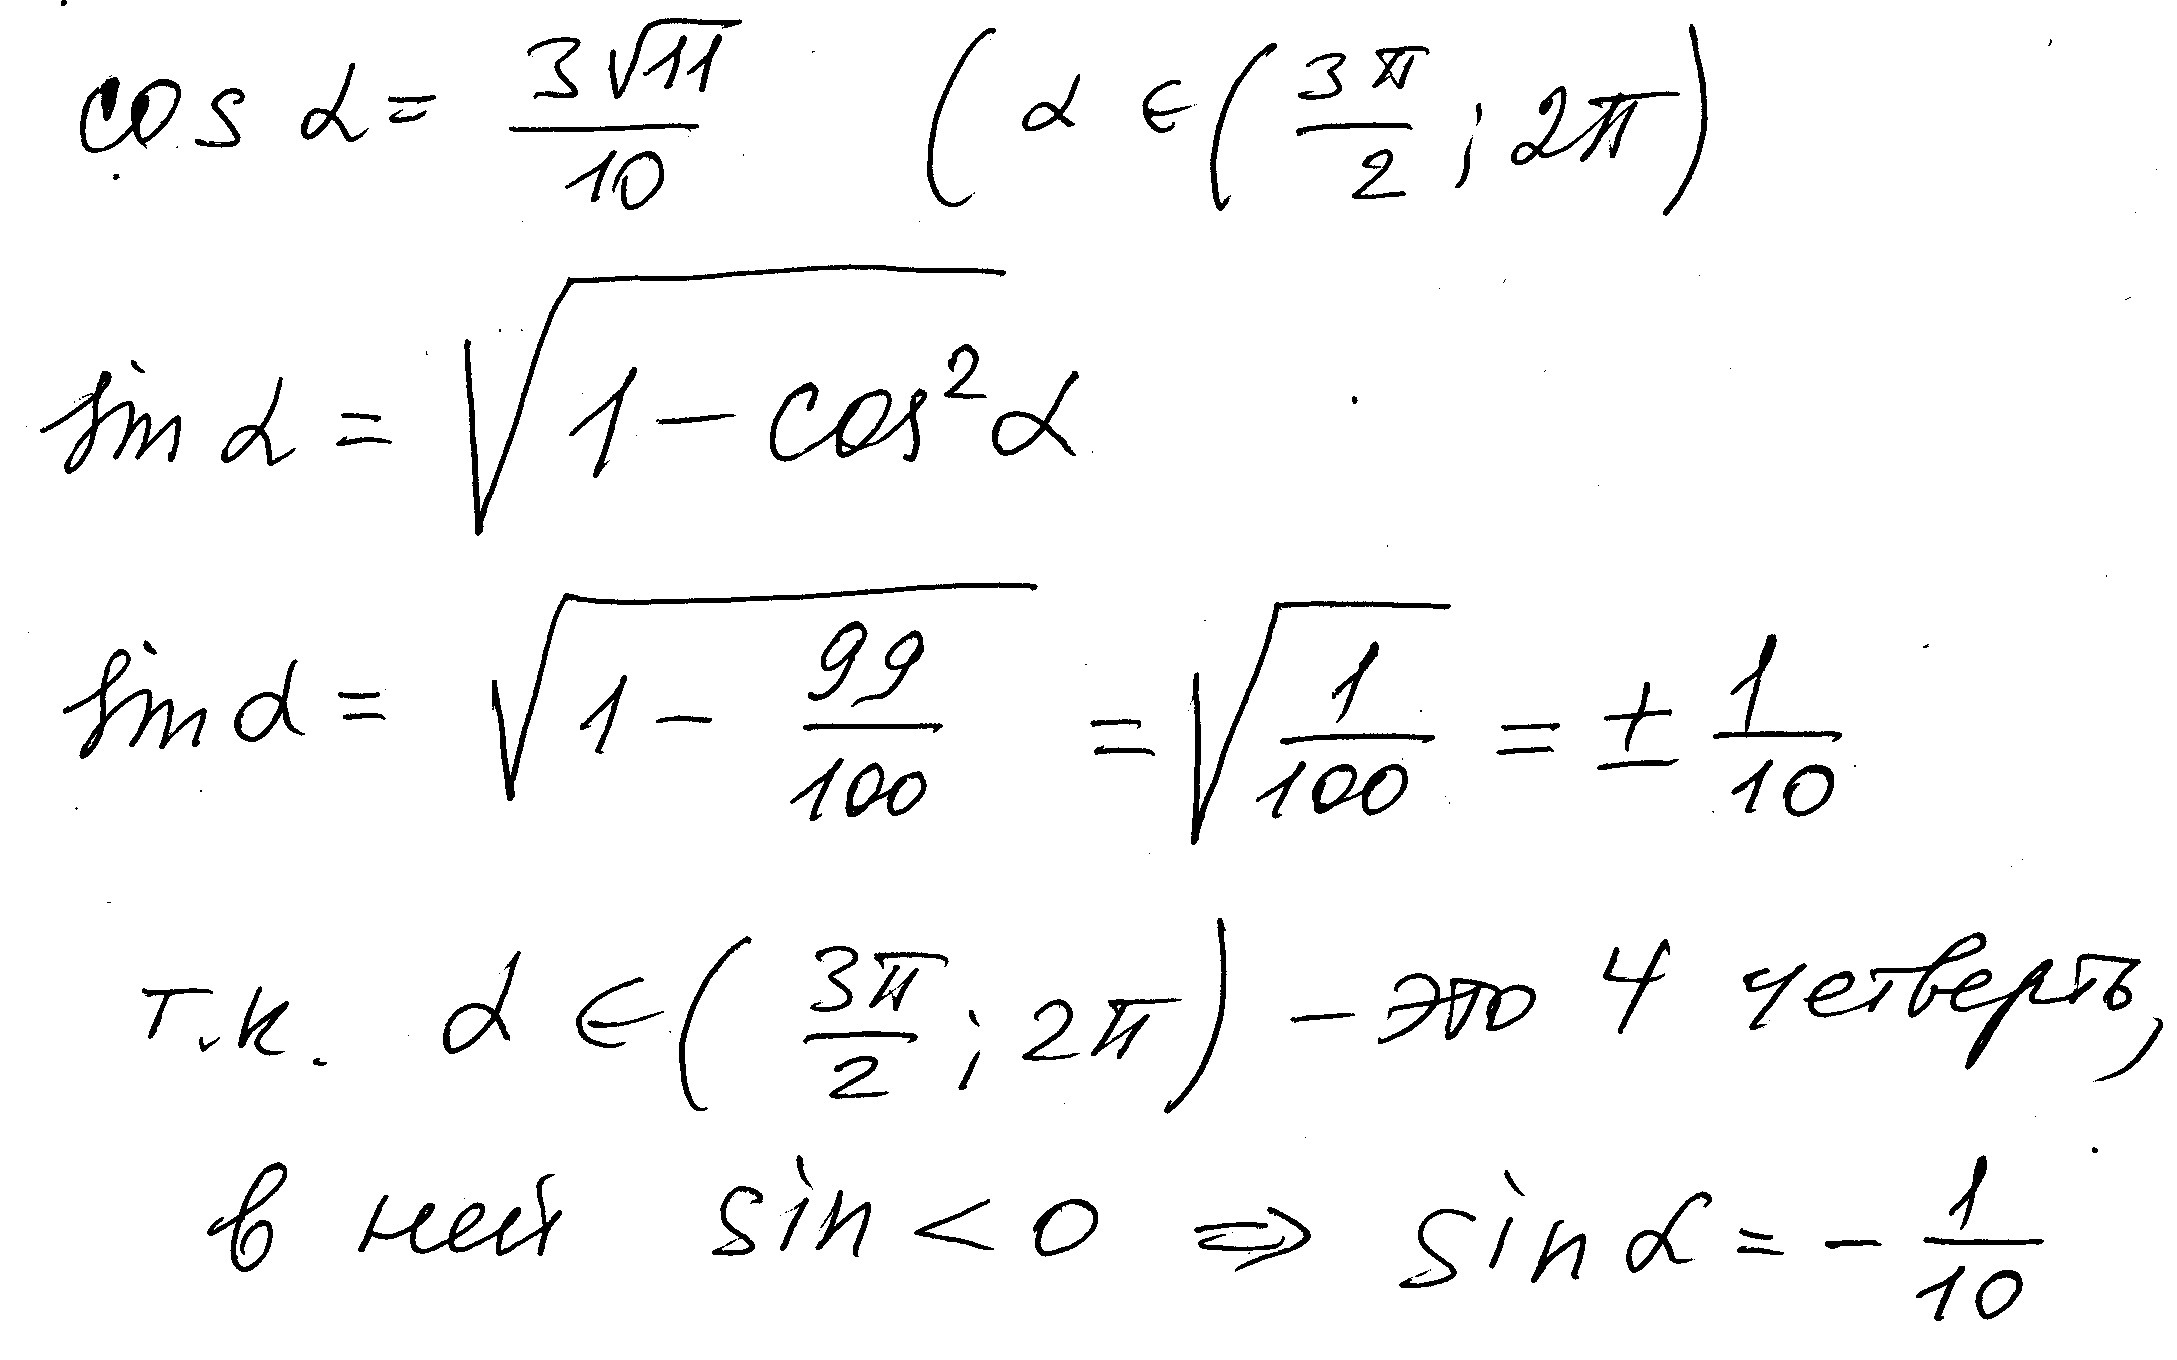 cos α = 3√11/10 (α ∈ (3π/2 ; 2π)
sin α = √(1 - cos²α)
sin α = √(1 - 99/100) = √(1/100) = ± 1/10
т.к. α ∈ (3π/2 ; 2π) - это 4 четверть,
в ней sin < 0 ⇒ sin α = - 1/10